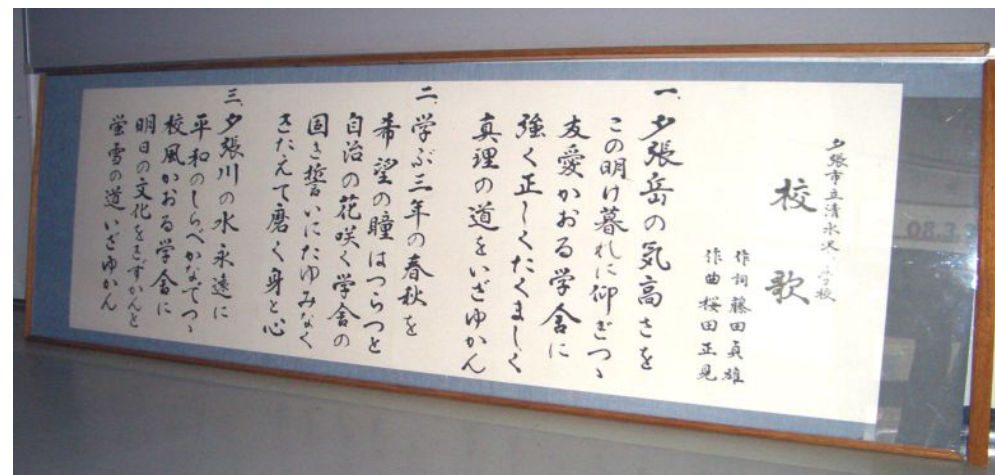 夕張市立清水沢学校
校歌
作詞 藤田貞雄
作曲 桜田正見
一、夕張岳の気高さを
この明け暮れに仰ぎつゝ
友愛かおる学舎に
強く正しくたくましく
真理の道をいざゆかん
二、学ぶ三年の春秋を
希望の瞳はつらつと
自治の花咲く学舎の
固き誓いにたゆみなく
きたえて磨く身と心
三、夕張川の水永遠に
平和のしらべかなでつゝ
校風かおる学舎に
明日の文化をきずかんと
蛍雪の道いざゆかん